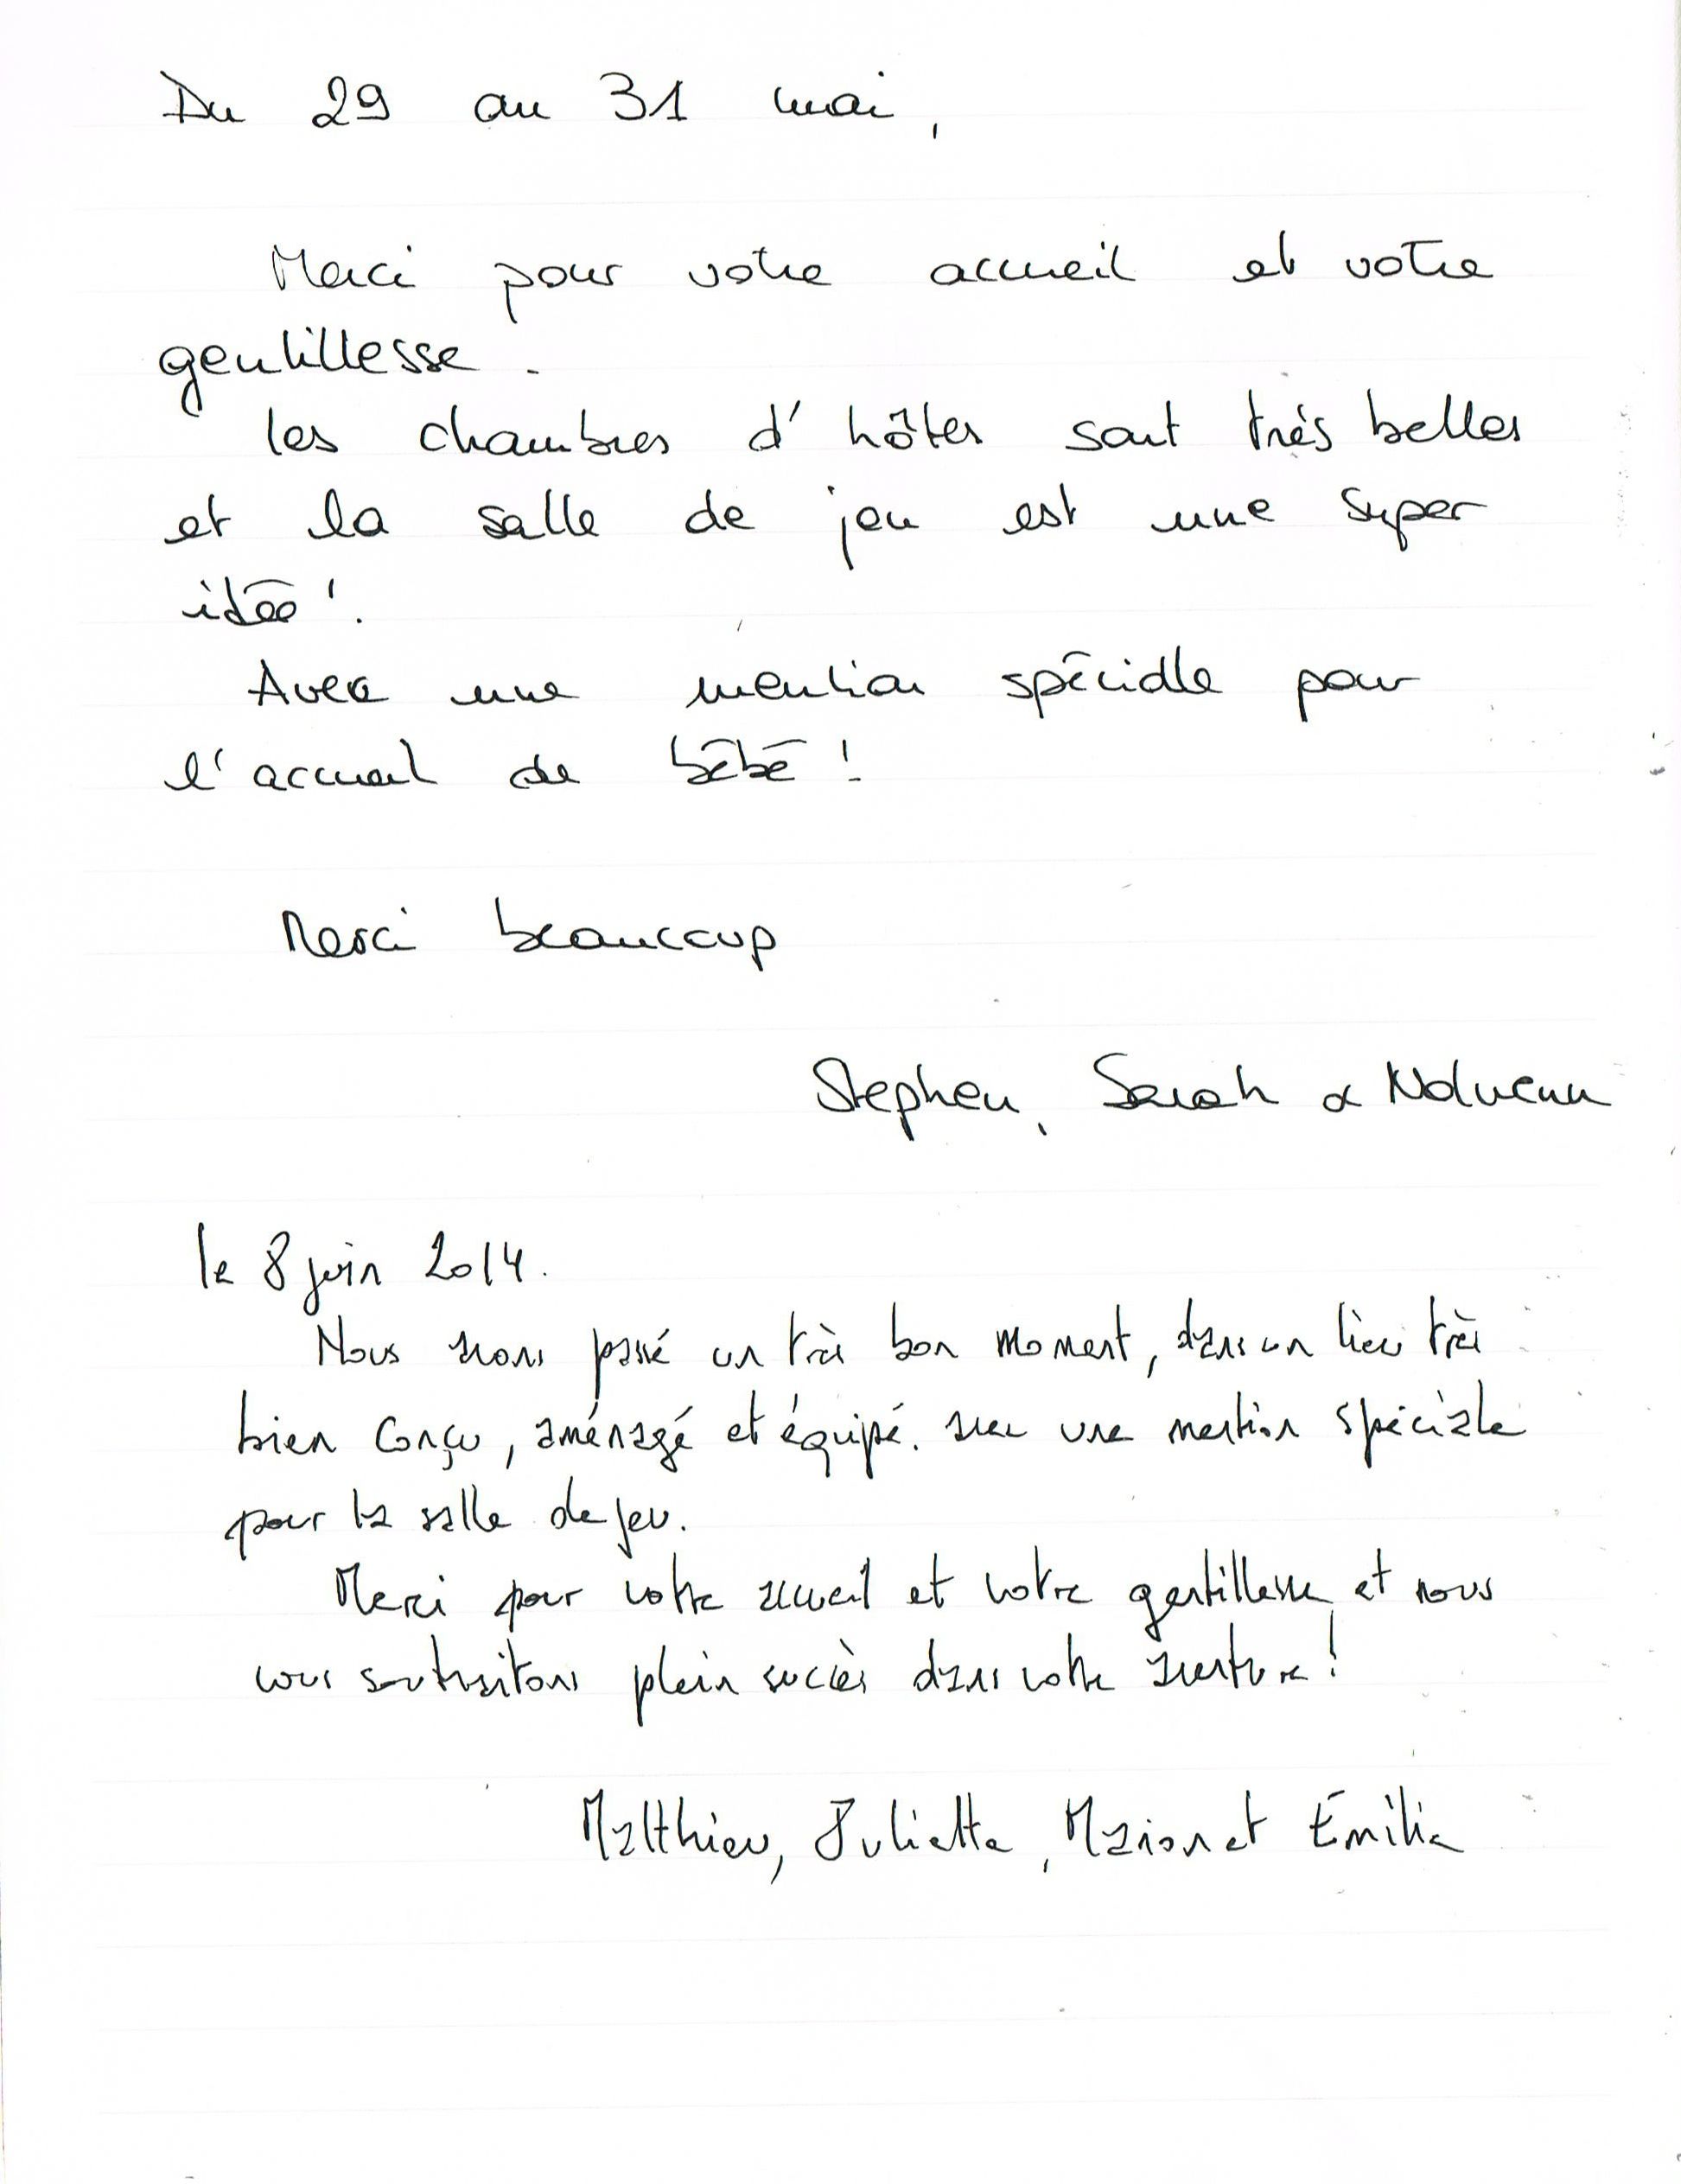 Du 29 au 31 mai,
Merci pour votre accueil et votre
gentillesse.
Les chambres d'hôtes sont très belles
et la salle de jeu est une super
idée !
Avec une mention spéciale pour
l'accueil de bébé !
Merci beaucoup
Stephen, Sarah &
le 8 juin 2014.
Nous avons passé un très bon moment, dans un lieu très
bien conçu, aménagé et équipé. avec une mention spéciale
pour la salle de jeu.
Merci pour votre accueil et votre gentillesse, et nous
vous souhaitons plein succès dans votre aventure !
Matthieu, Juliette, Marion et Emilie